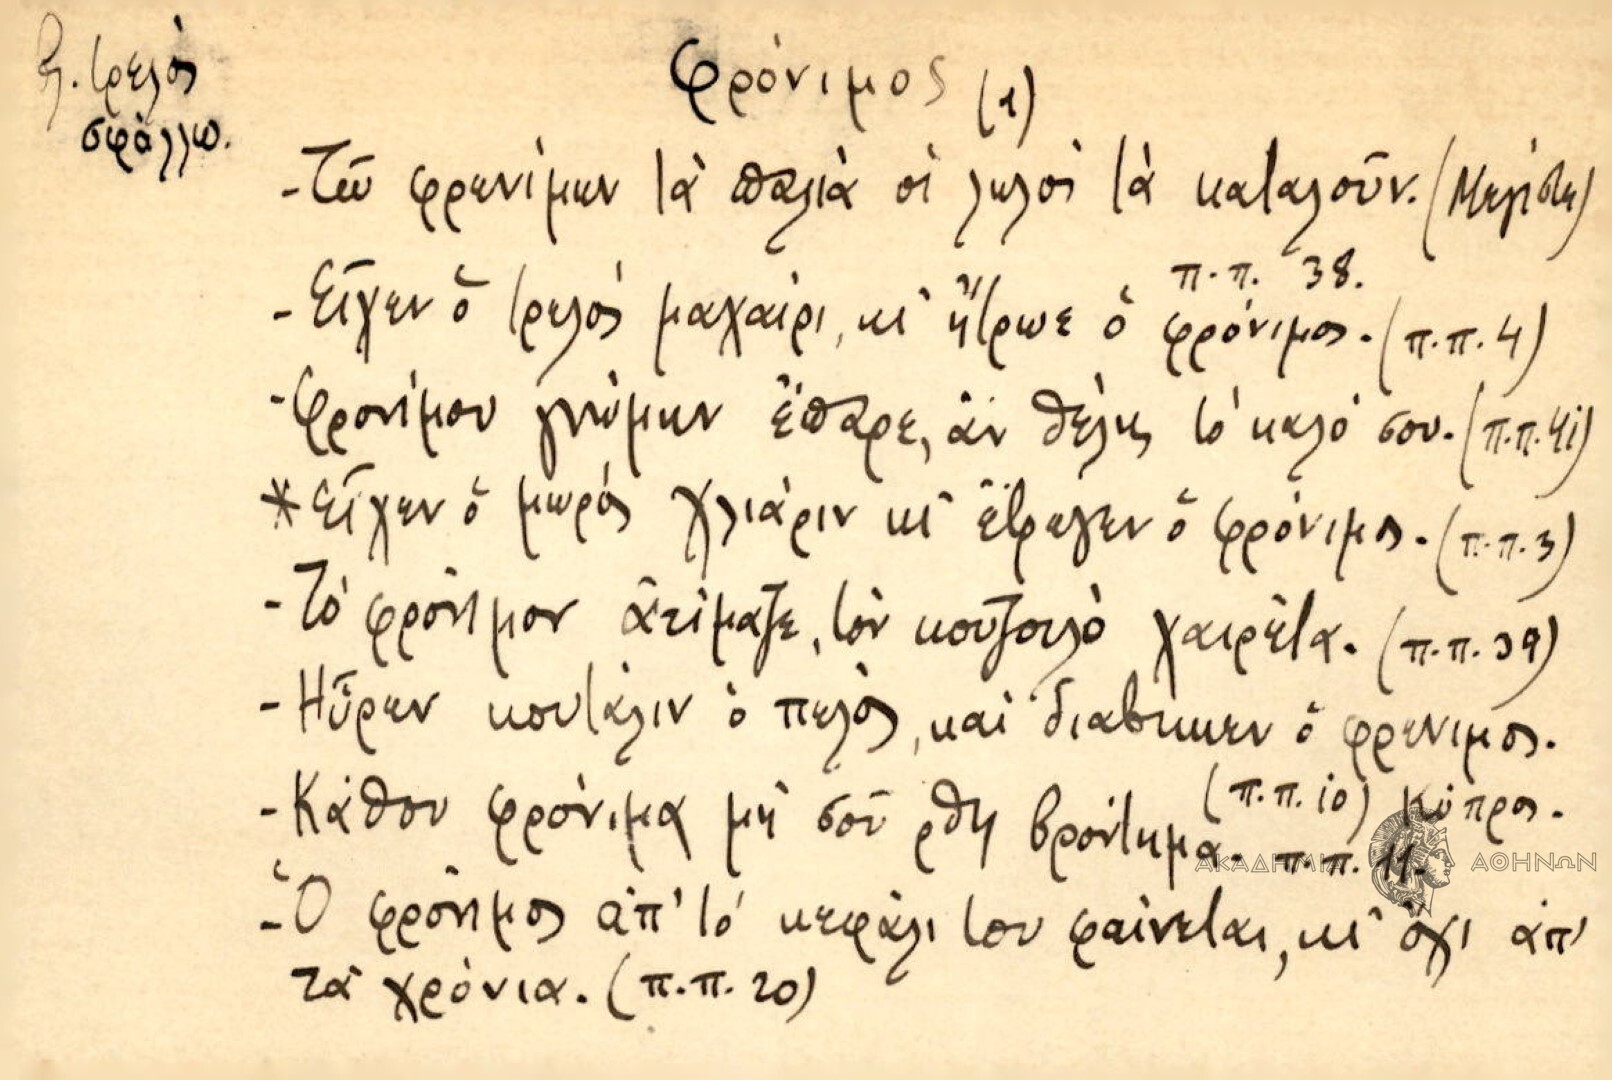 βλ. τρελός
σφάλλω.
Φρόνιμος (1)
- Τῶ φρενίμων τὰ παλιὰ οἱ λωλοὶ τὰ καταλοῦν. (Μεγίστη)
π.π. 38.
- Εἶχεν ὁ τρελός μαχαίρι, κι' ἤτρωε ὁ φρόνιμος. (π.π. 4)
- Φρονίμου γνώμην ἔπαρε, ἂν θέλης τό καλό σου. (π.π. 41)
* Εἶχεν ὁ μωρός χλιάριν κι' ἔτρωγεν ὁ φρόνιμος. (π.π. 3)
- Τό φρόνιμον ἀτίμαζε, τόν κουζουλό χαιρέτα. (π.π. 39)
- Ηὗρεν κουτάλιν ὁ πελός, καί διάβηκεν ὁ φρενιμος.
(π.π. 10) Κύπρος.
- Κάθου φρόνιμα μή σοῦ ρθη βρόντημα. π.π. 11.
- Ὁ φρόνιμος ἀπ' τό κεφάλι του φαίνεται, κι' ὄχι ἀπ'
τά χρόνια. (π.π. 20)
ΑΚΑΔΗΜΙΑ ΑΘΗΝΩΝ